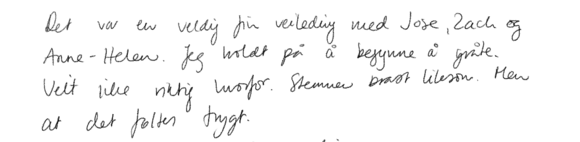 Det var en veldig fin veiledning med Jose, Zach og
Anne-Helen. Jeg holdt på å begynne å gråte.
Veit ikke riktig hvorfor. Stemmen brast liksom. Men
at det føltes trygt.